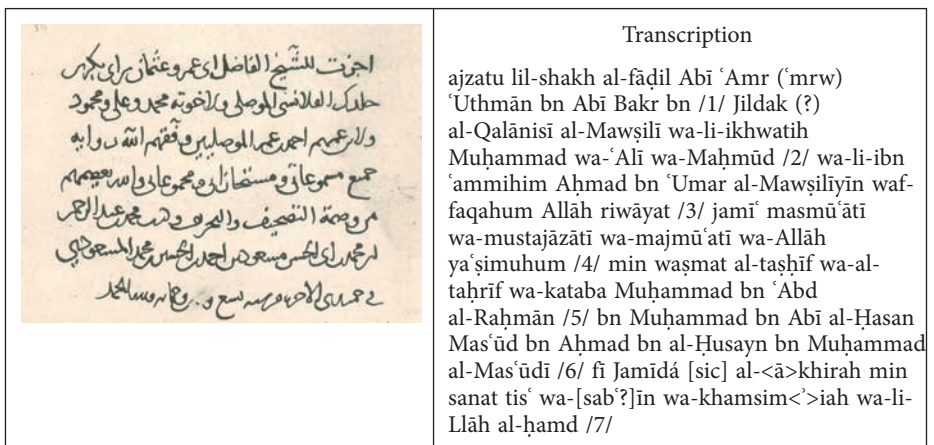 اجزت للشيخ الفاضل ابى عمرو عثمان بن ابى بكر بن
جلدك القلانسى الموصلى ولاخوته محمد وعلى ومحمود
ولابن عمهم احمد بن عمر الموصليين وفقهم الله رواية
جميع مسموعاتى ومستجازاتى ومجموعاتى والله يعصمهم
من وصمة التصحيف والتحريف وكتب محمد بن عبد الرحمن
بن محمد بن ابى الحسن مسعود بن احمد بن الحسين بن محمد المسعودى
فى الاخرة من سنة تسع ولله الحمد
Transcription
ajzatu lil-shakh al-fāḍil Abī ʿAmr (ʿmrw)
ʿUthmān bn Abī Bakr bn /1/ Jildak (?)
al-Qalānisī al-Mawṣilī wa-li-ikhwatih
Muḥammad wa-ʿAlī wa-Maḥmūd /2/ wa-li-ibn
ʿammihim Aḥmad bn ʿUmar al-Mawṣilīyīn waf-
faqahum Allāh riwāyat /3/ jamīʿ masmūʿātī
wa-mustajāzātī wa-majmūʿatī wa-Allāh
yaʿṣimuhum /4/ min waṣmat al-taṣḥīf wa-al-
taḥrīf wa-kataba Muḥammad bn ʿAbd
al-Raḥmān /5/ bn Muḥammad bn Abī al-Ḥasan
Masʿūd bn Aḥmad bn al-Ḥusayn bn Muḥammad
al-Masʿūdī /6/ fī Jamīdá [sic] al-<ā>khirah min
sanat tisʿ wa-[sabʿ?]īn wa-khamsim<ʾ>iah wa-li-
Llāh al-ḥamd /7/